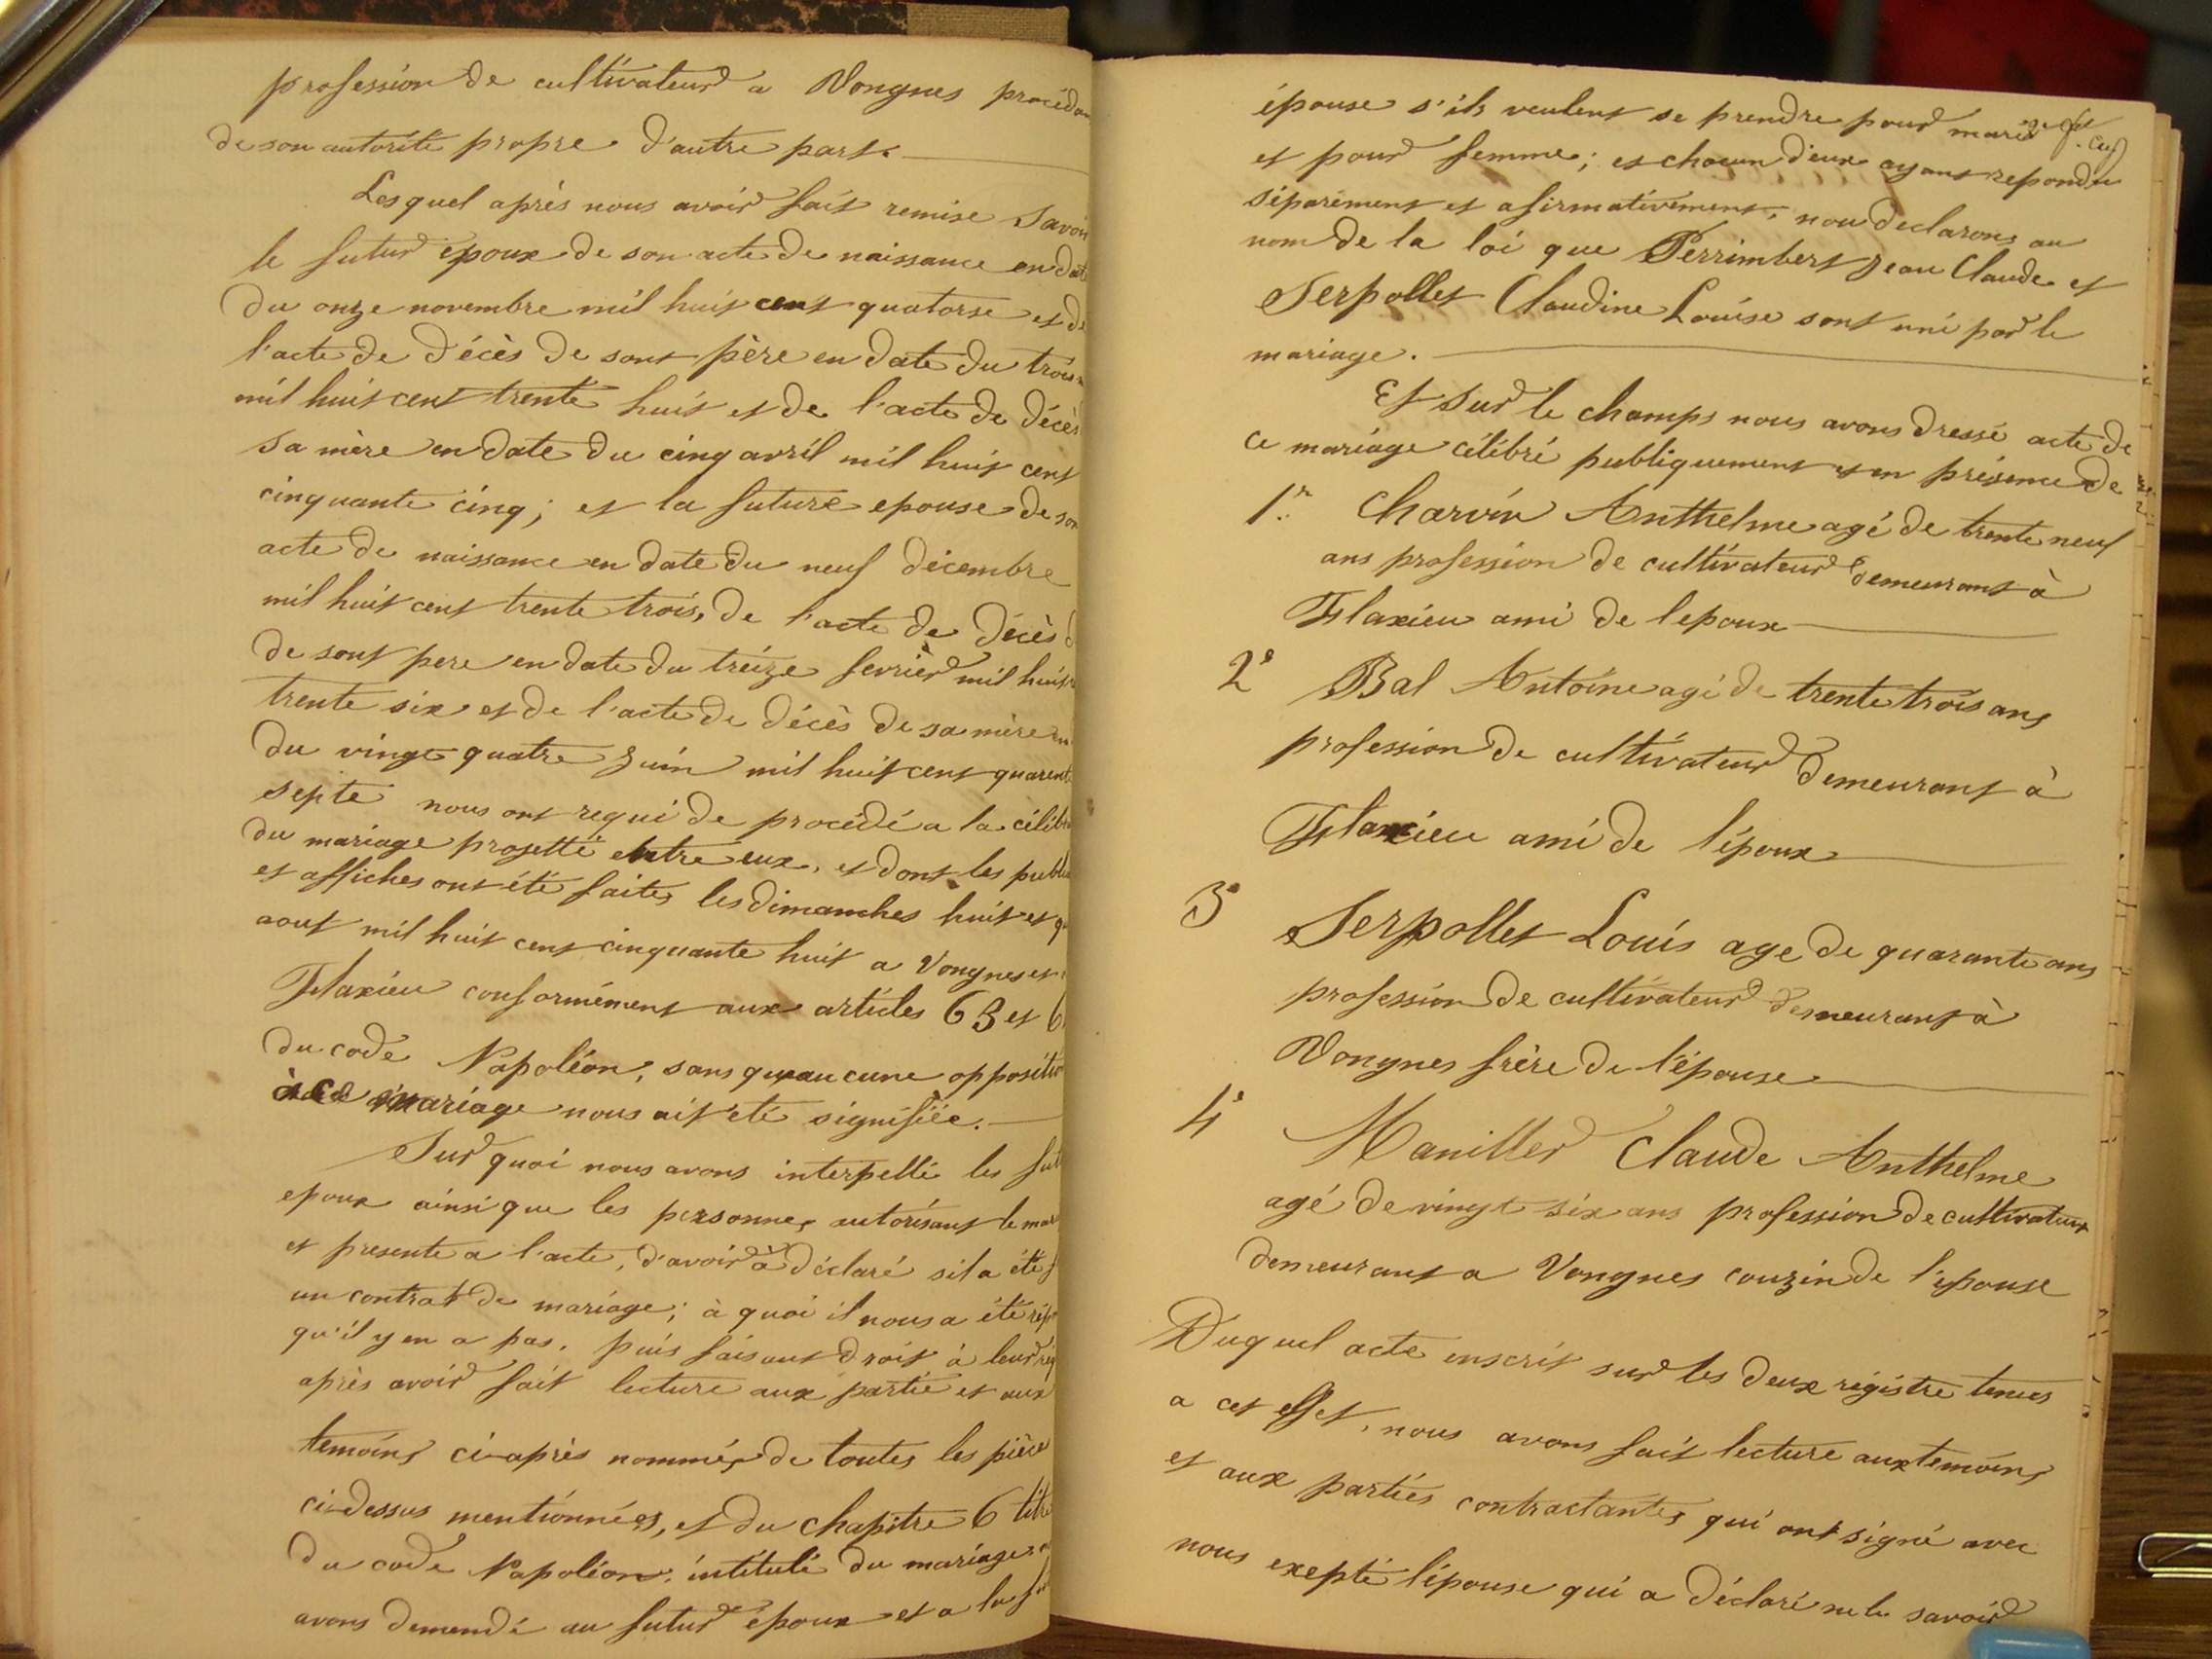 profession de cultivateur a Vongnes procédan
de son autorité propre d'autre part.
Lesquel après nous avoir fait remise Savoir
le futur époux de son acte de naissance en dat
du onze novembre mil huit cent quatorse et de
l'acte de décès de sont père en date du trois
mil huit cent trente huit et de l'acte de décès
sa mère en date du cinq avril mil huit cent
cinquante cinq; et la future epouse de son
acte de naissance en date du neuf décembre
mil huit cent trente trois, de l'acte de décès d
de sont pere en date du treize fevrier mil huit
trente six et de l'acte de décès de sa mère en
du vingt quatre Juin mil huit cent quarent
septe nous ont requi de procédé a la célébr
du mariage projetté entre eux, et dont les publi
et affiches ont été faites les dimanches huit et qu
aout mil huit cent cinquante huit a Vongnes et
Flaxieu conformément aux articles 63 et 6
du code Napoléon, sans qu'aucune oppositio
à ce mariage nous ait été signifiée.
Sur quoi nous avons interpellé les fut
epoux ainsi que les personnes autorisant le mar
et presente a l'acte, d'avoir à déclaré sil a été f
un contrat de mariage; à quoi il nous a été rép
qu'il y en a pas. puis faisant droit à leur réq
après avoir fait lecture aux partie et aux
temoins ci-après nommés de toutes les pièce
ci-dessus mentionnées, et du chapitre 6 titre
du code Napoléon, intitulé du mariage,
avons demendé au futur époux et a la fu
épouse s'ils veulent se prendre pour mari
et pour femme; et chacun d'eux ayant repondu
séparément et afirmativement, nou declarons au
nom de la loi que Perrimbert Jean Claude et
Serpollet Claudine Louise sont uni par le
mariage.
Et sur le champs nous avons dressé acte de
ce mariage célébré publiquement et en présence de
1.r Charvin Anthelme agé de trente neuf
ans profession de cultivateur demeurant à
Flaxieu ami de lepoux
2e Bal Antoine agé de trente trois ans
profession de cultivateur demeurant à
Flaxieu ami de l'époux
3e Serpollet Louis age de quarante ans
profession de cultivateur demeurant à
Vongnes frère de l'épouse
4e Maniller Claude Anthelme
agé de vingt six ans profession de cultivateur
demeurant a Vongnes couzin de l'epouse
Duquel acte inscrit sur les deux régistre tenues
a cet effet, nous avons fait lecture aux temoins
et aux parties contractantes qui ont signé avec
nous exepté l'épouse qui a déclaré ne le savoir